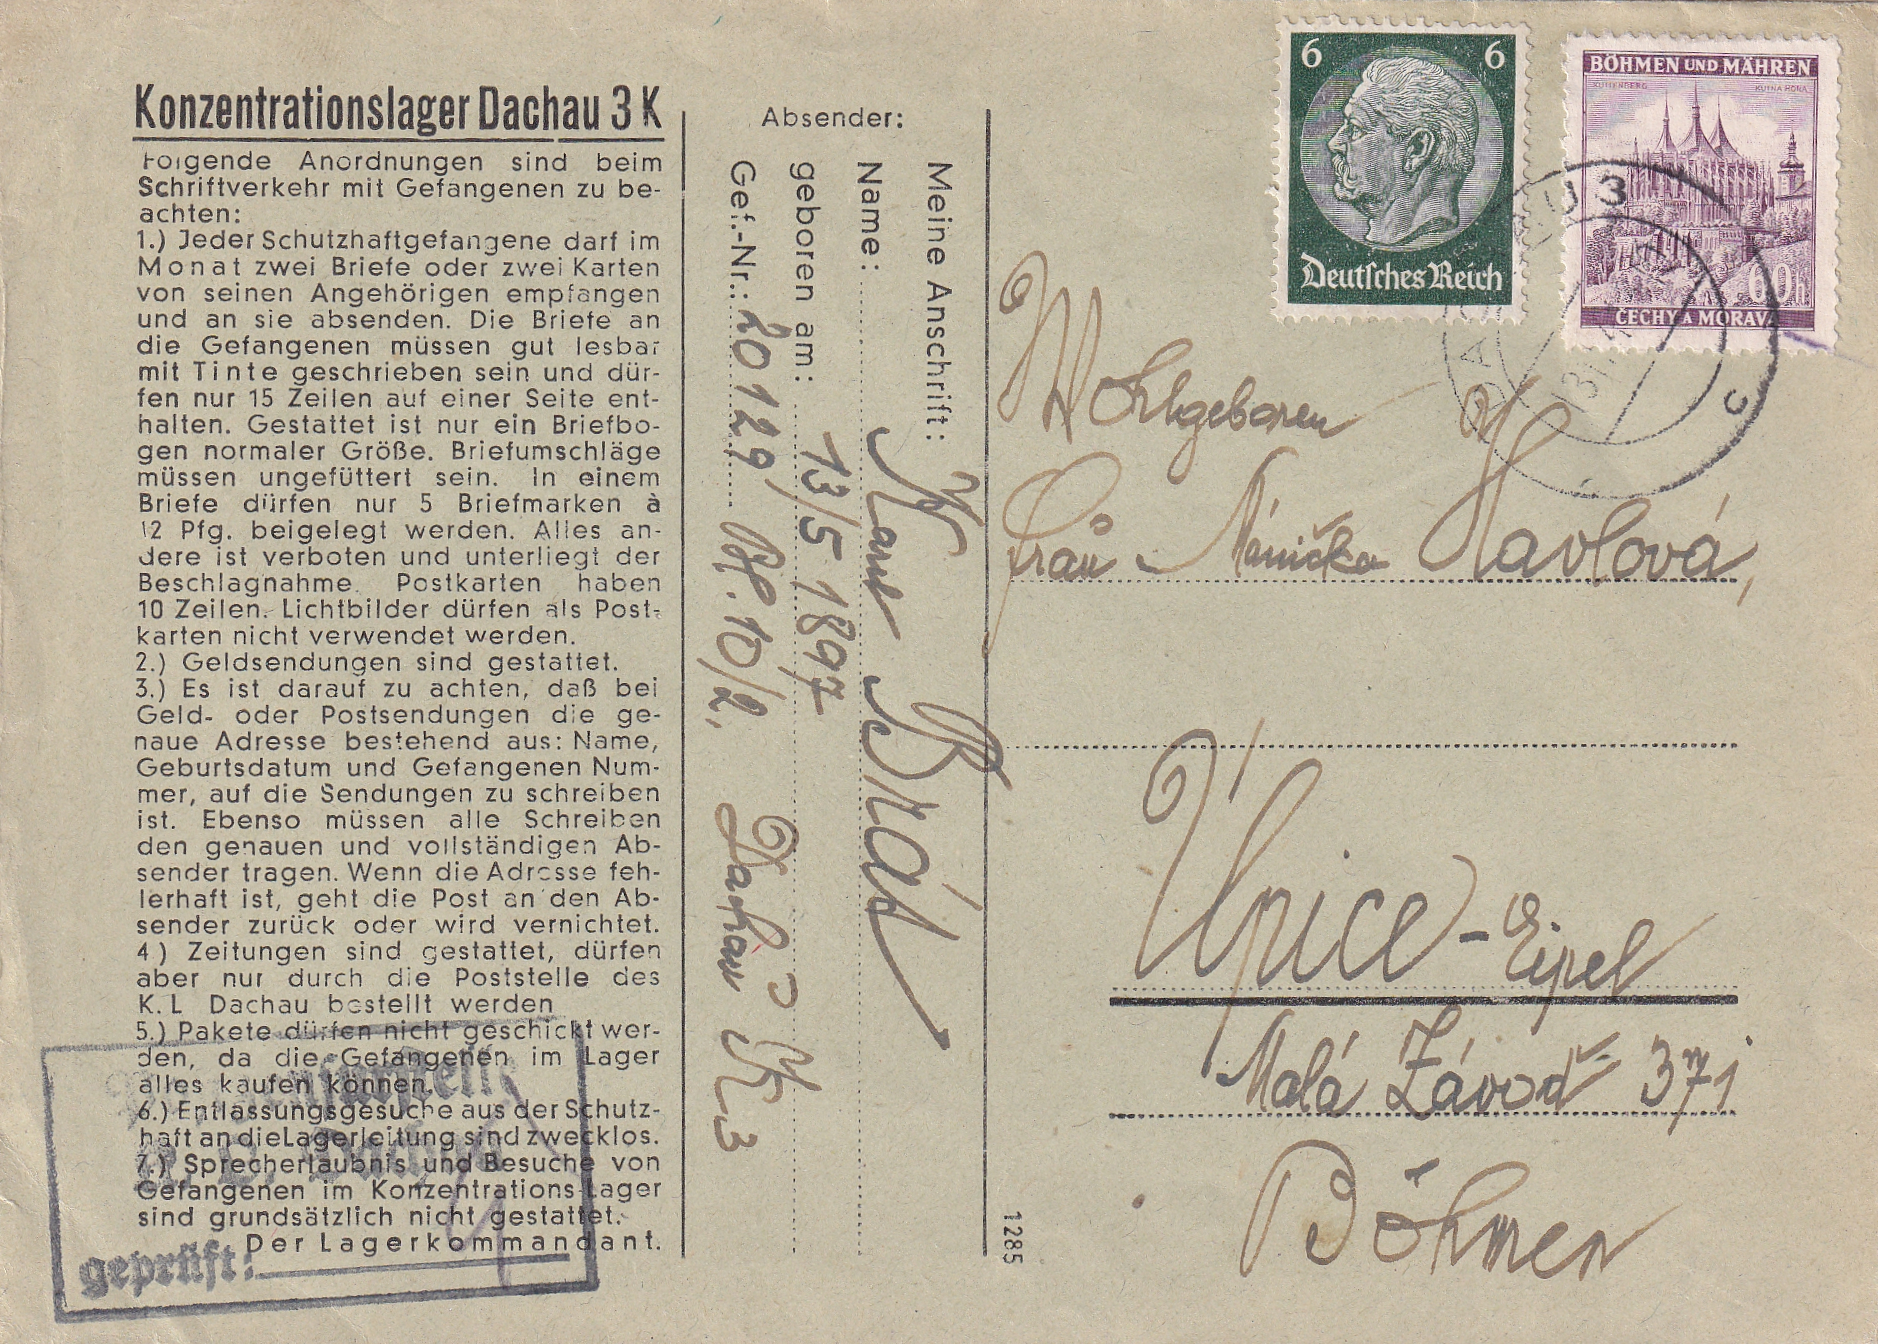 Konzentrationslager Dachau 3 K
Folgende Anordnungen sind beim
Schriftverkehr mit Gefangenen zu be-
achten:
1.) Jeder Schutzhaftgefangene darf im
Monat zwei Briefe oder zwei Karten
von seinen Angehörigen empfangen
und an sie absenden. Die Briefe an
die Gefangenen müssen gut lesbar
mit Tinte geschrieben sein und dür-
fen nur 15 Zeilen auf einer Seite ent-
halten. Gestattet ist nur ein Briefbo-
gen normaler Größe. Briefumschläge
müssen ungefüttert sein. In einem
Briefe dürfen nur 5 Briefmarken à
12 Pfg. beigelegt werden. Alles an-
dere ist verboten und unterliegt der
Beschlagnahme. Postkarten haben
10 Zeilen. Lichtbilder dürfen als Post-
karten nicht verwendet werden.
2.) Geldsendungen sind gestattet.
3.) Es ist darauf zu achten, daß bei
Geld- oder Postsendungen die ge-
naue Adresse bestehend aus: Name,
Geburtsdatum und Gefangenen Num-
mer, auf die Sendungen zu schreiben
ist. Ebenso müssen alle Schreiben
den genauen und vollständigen Ab-
sender tragen. Wenn die Adresse feh-
lerhaft ist, geht die Post an den Ab-
sender zurück oder wird vernichtet.
4.) Zeitungen sind gestattet, dürfen
aber nur durch die Poststelle des
K. L Dachau bestellt werden
5.) Pakete dürfen nicht geschickt wer-
den, da die Gefangenen im Lager
alles kaufen können.
6.) Entlassungsgesuche aus der Schutz-
haft an die Lagerleitung sind zwecklos.
7.) Sprecherlaubnis und Besuche von
Gefangenen im Konzentrations-Lager
sind grundsätzlich nicht gestattet.
Der Lagerkommandant.
geprüft:
Absender:
Meine Anschrift:
Name: Karel
geboren am: 13/5 1897
Gef.-Nr.: 20129 Bl. 10/2,
Dachau K 3
1285
6 6
Deutsches Reich
BÖHMEN UND MÄHREN
KUTTENBERG KUTNÁ HORA
60h
ČECHY A MORAVA
Wohlgeboren
Frau Mánička Havlová,
Úpice - Eipel
Malá Závodš 371
Böhmen